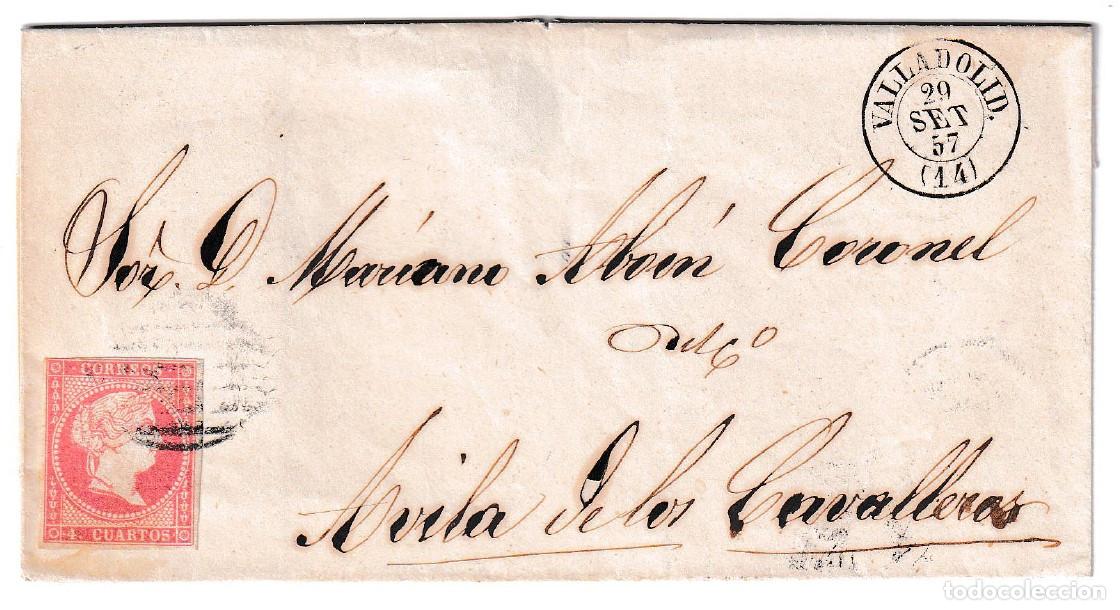 VALLADOLID.
29
SET
57
(14)
Sor. D. Mariano Aboin Coronel
Avila de los Cavalleros
CORREOS
4 CUARTOS
todocoleccion